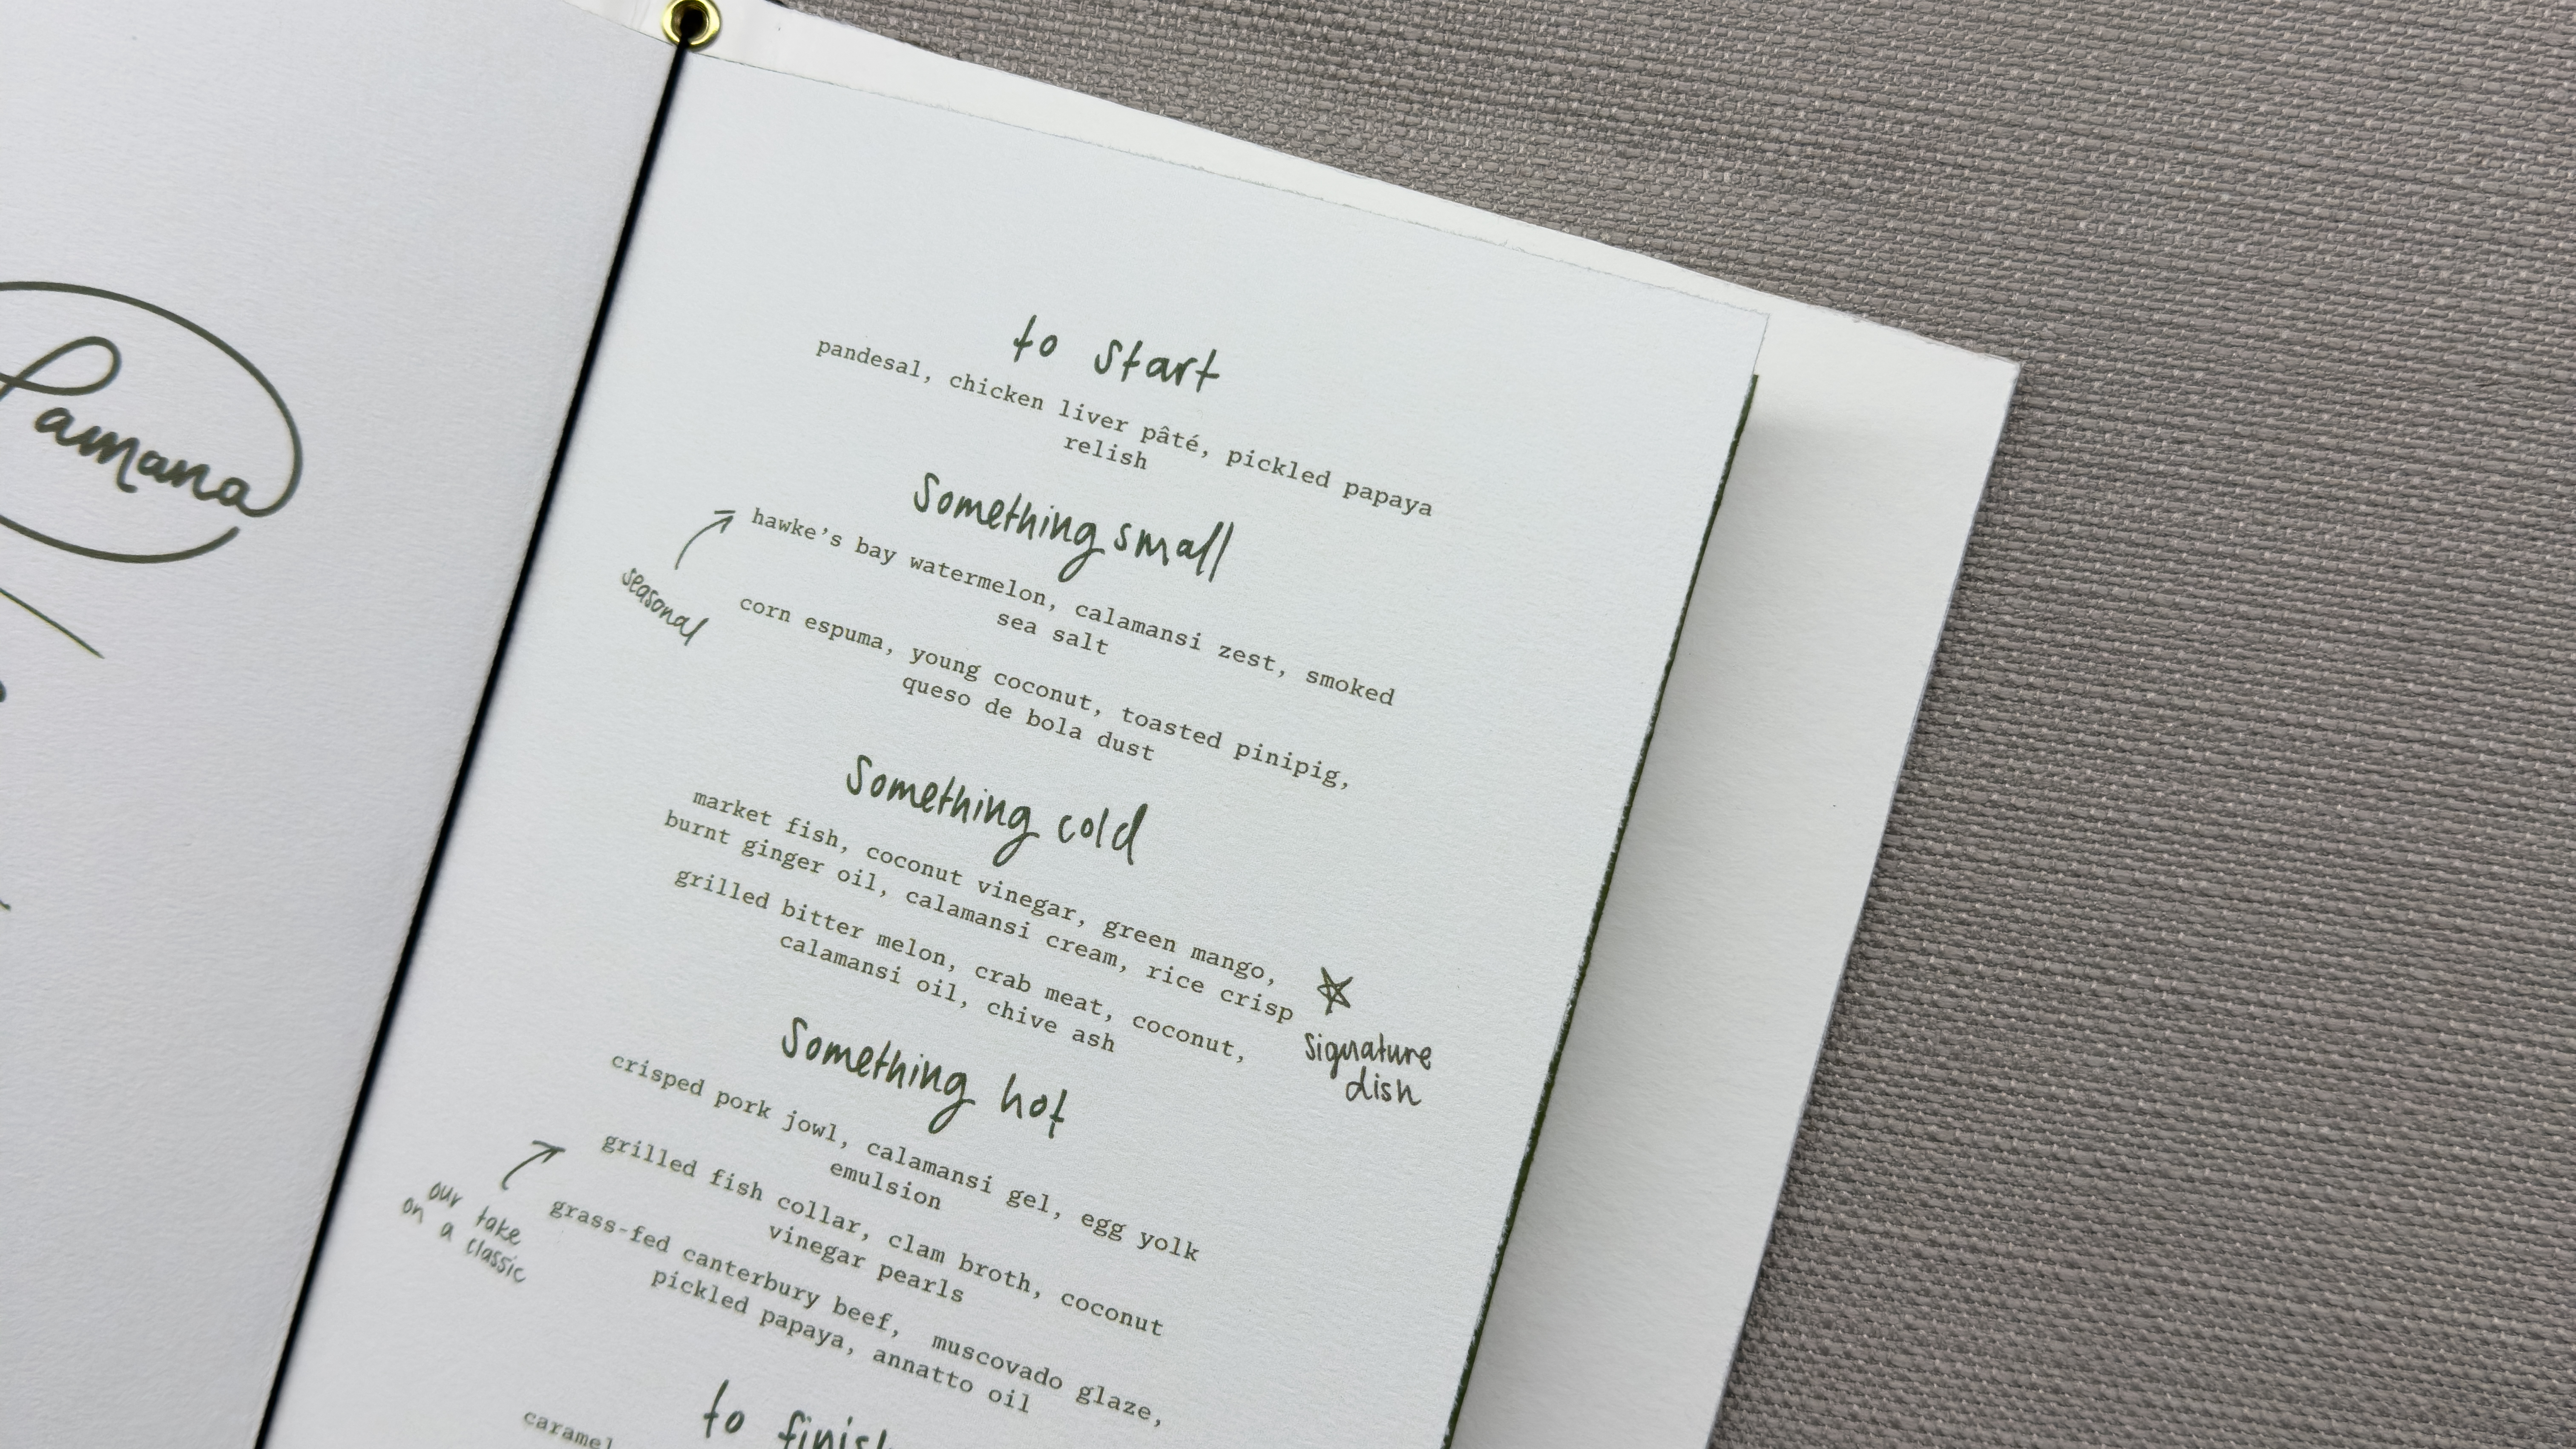 Pamana
to start
pandesal, chicken liver pâté, pickled papaya
relish
Something small
hawke's bay watermelon, calamansi zest, smoked
sea salt
seasonal
corn espuma, young coconut, toasted pinipig,
queso de bola dust
Something cold
market fish, coconut vinegar, green mango,
burnt ginger oil, calamansi cream, rice crisp
signature
dish
grilled bitter melon, crab meat, coconut,
calamansi oil, chive ash
Something hot
crisped pork jowl, calamansi gel, egg yolk
emulsion
grilled fish collar, clam broth, coconut
vinegar pearls
our take
on a classic
grass-fed canterbury beef,  muscovado glaze,
pickled papaya, annatto oil
to finish
caramel